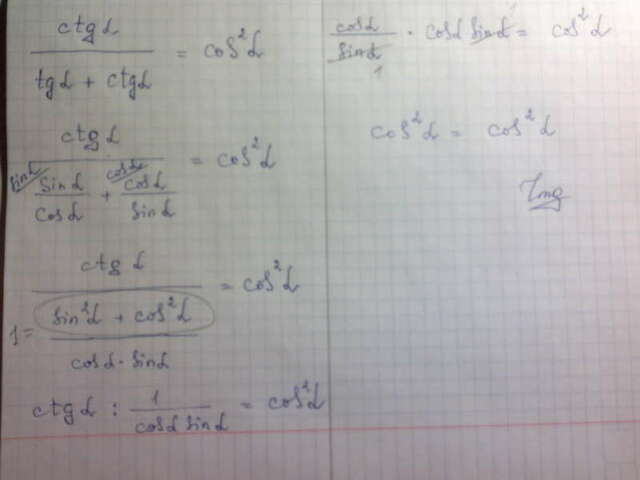 ctg α / (tg α + ctg α) = cos²α
ctg α / (sin α / cos α + cos α / sin α) = cos²α
sin α cos α
ctg α / ((sin²α + cos²α) / (cos α · sin α)) = cos²α
1 =
ctg α : 1 / (cos α sin α) = cos²α
cos α / sin α · cos α sin α = cos²α
1
cos²α = cos²α